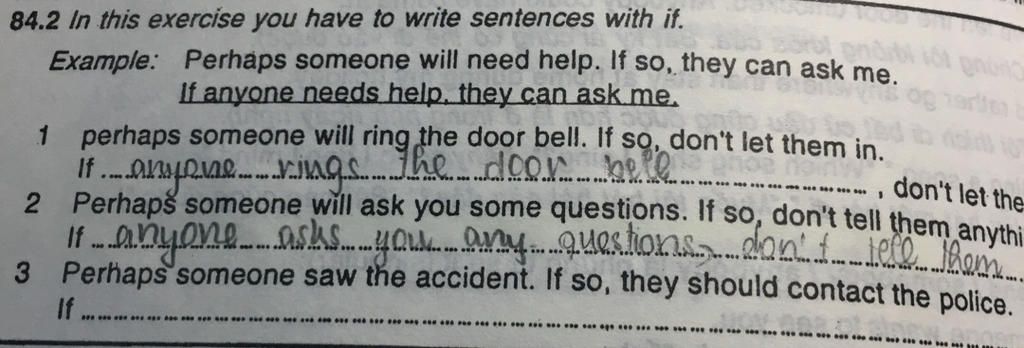 84.2 In this exercise you have to write sentences with if.
Example: Perhaps someone will need help. If so, they can ask me.
If anyone needs help, they can ask me.
1 perhaps someone will ring the door bell. If so, don't let them in.
If ... anyone rings the door bell ..., don't let the
2 Perhaps someone will ask you some questions. If so, don't tell them anythi
If ... anyone asks you any questions, don't tell them ...
3 Perhaps someone saw the accident. If so, they should contact the police.
If ...